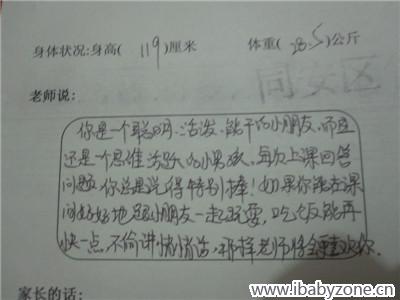 身体状况:身高( 119 )厘米 体重( 28.5 )公斤
同安区
老师说:
你是一个聪明、活泼、能干的小朋友,而且
还是一个思维活跃的小男孩,每次上课回答
问题你总是说得特别棒!如果你能在课
间好好地跟小朋友一起玩耍,吃饭能再
快一点,不偷讲悄悄话,那样老师将会更喜欢你.
家长的话:
www.ibabyzone.cn